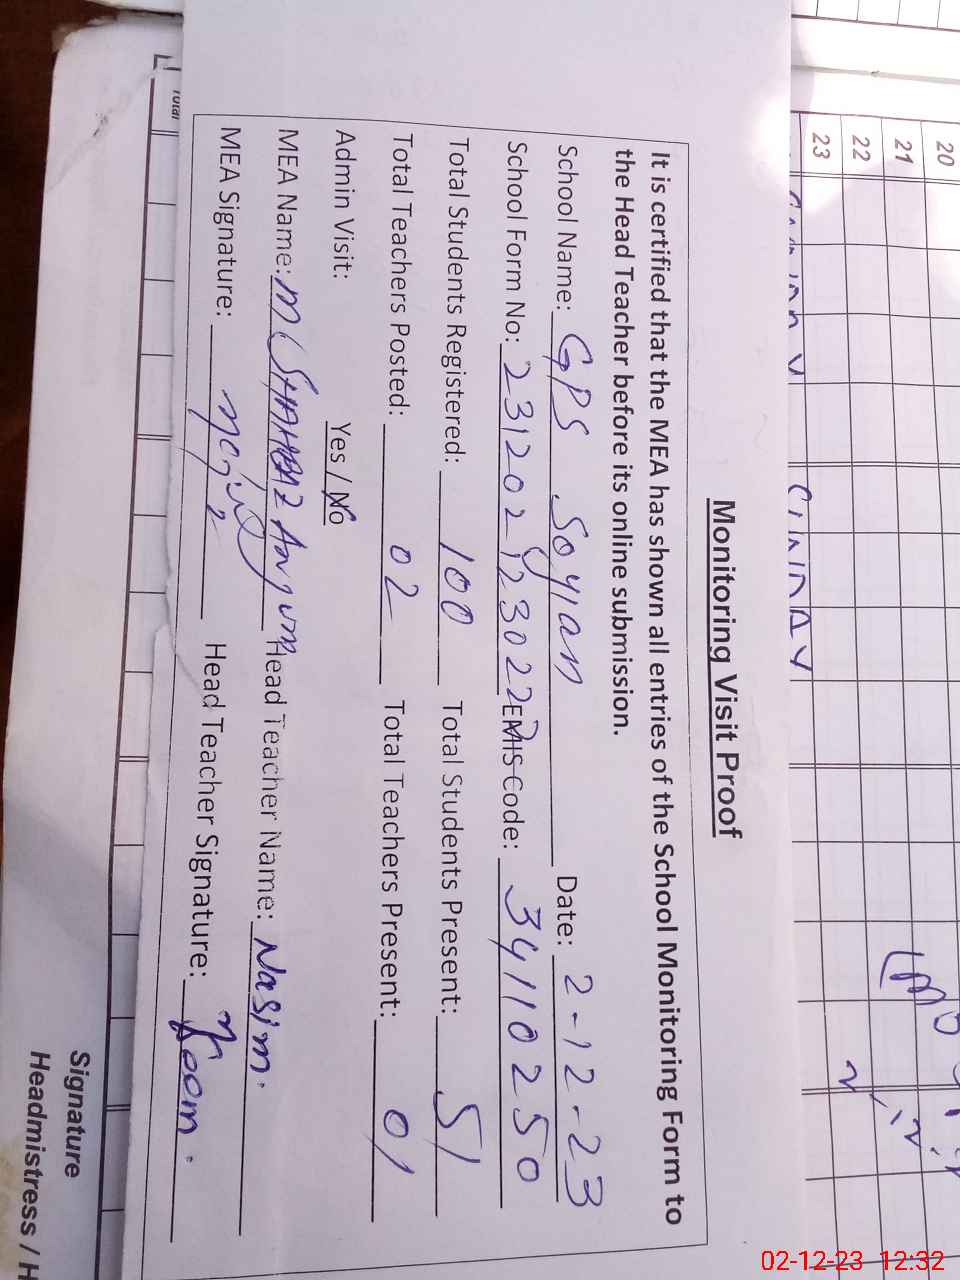 Monitoring Visit Proof
It is certified that the MEA has shown all entries of the School Monitoring Form to
the Head Teacher before its online submission.
School Name: GPS Soyian Date: 2-12-23
School Form No: 23120212302 EMIS Code: 34110250
Total Students Registered: 100 Total Students Present: 51
Total Teachers Posted: 02 Total Teachers Present: 01
Admin Visit: Yes / No
MEA Name: M SHAHBAZ Anjum Head Teacher Name: Nasim.
MEA Signature: Head Teacher Signature:
20
21
22
23
SUNDAY
Total
Signature
Headmistress / H
02-12-23 12:32